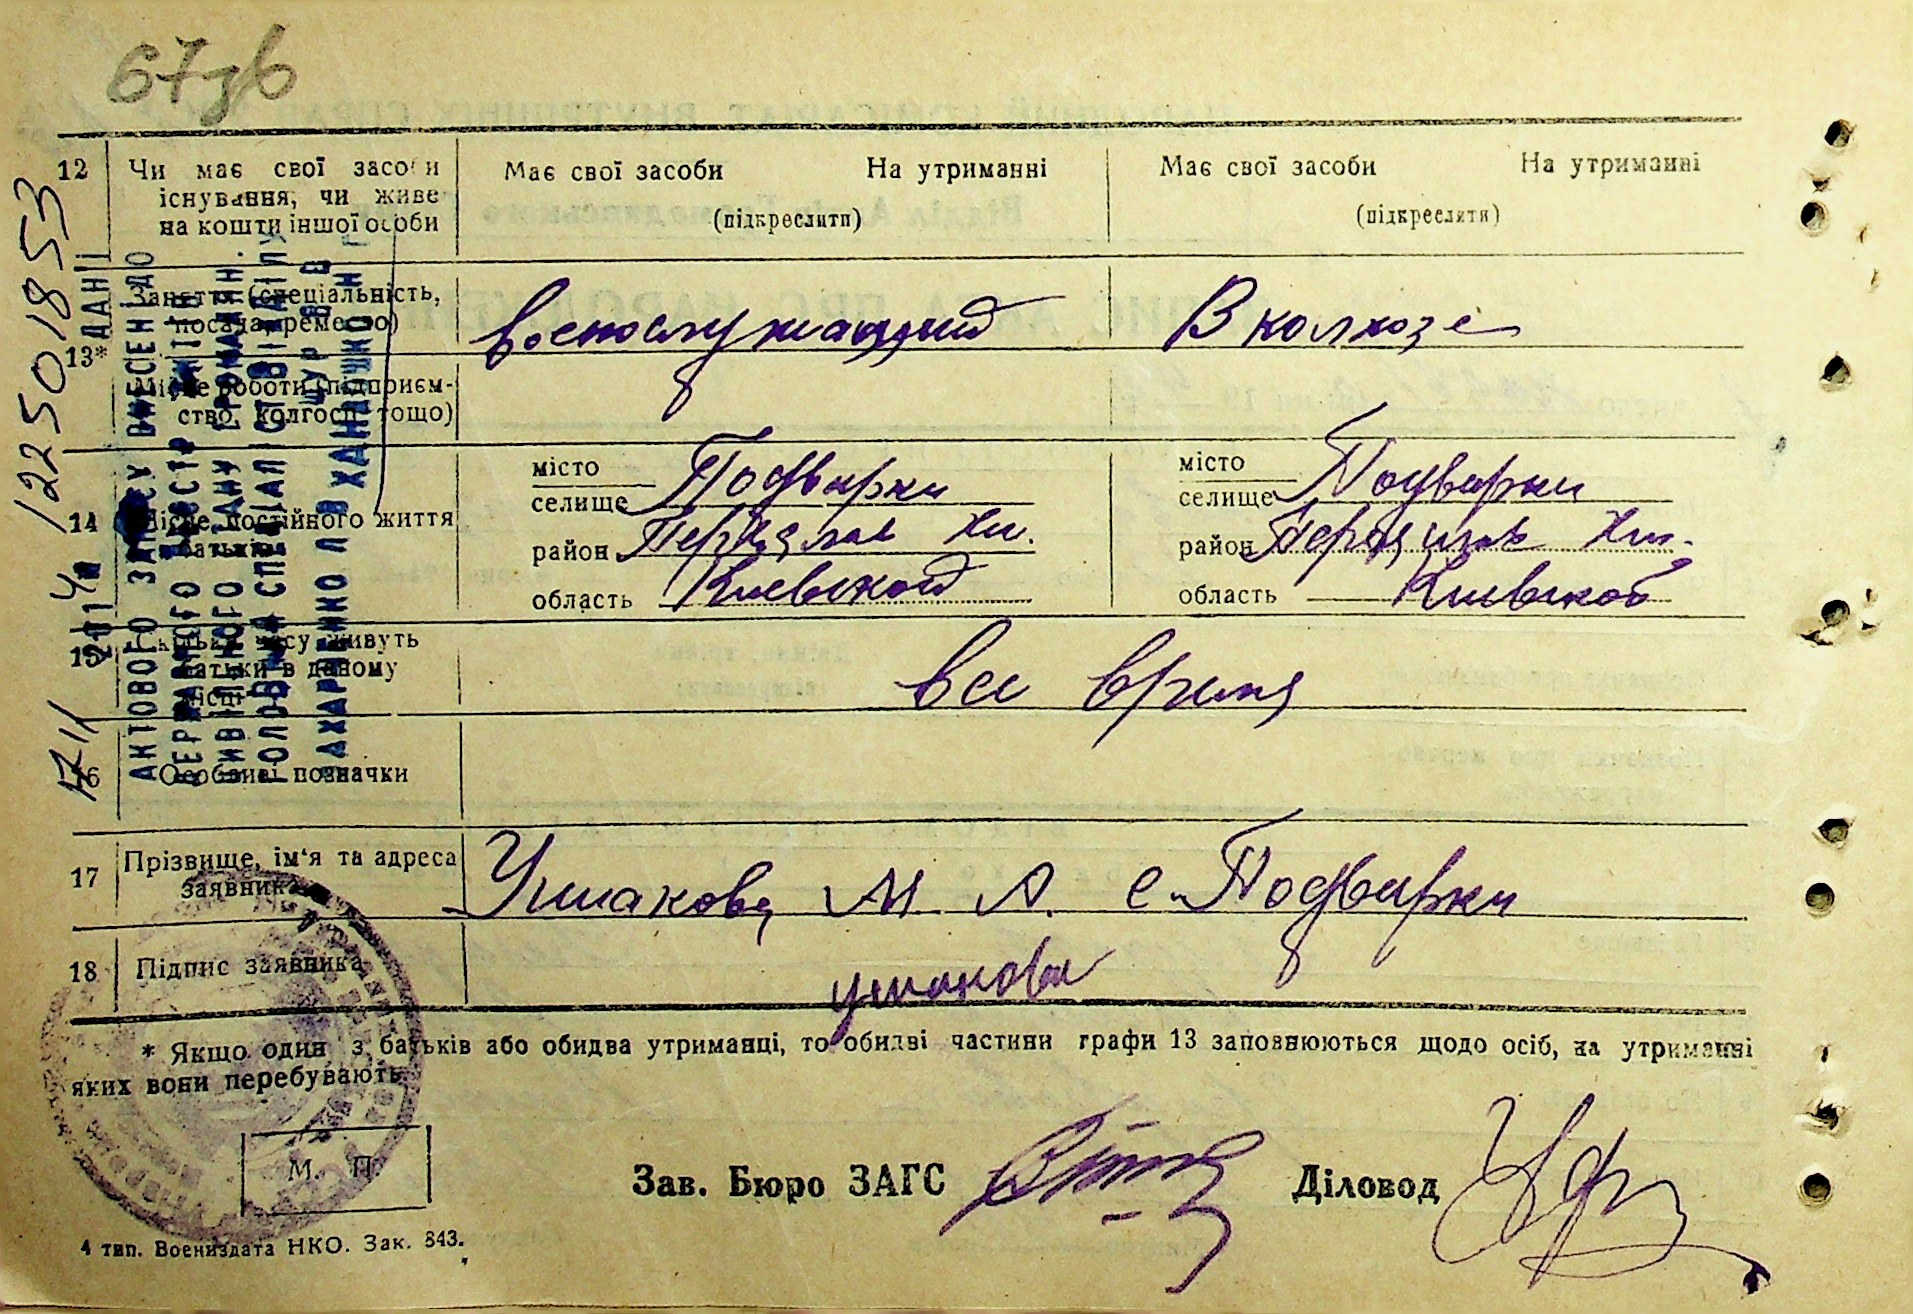 67зв
12 Чи має свої засоби існування, чи живе на кошти іншої особи
Має свої засоби На утриманні
(підкреслити)
Має свої засоби На утриманні
(підкреслити)
13* Заняття (спеціальність, посада, ремество)
военослужащий
В колхозе
Місце роботи (підприєм-
ство, колгосп тощо)
14 Місце постійного життя
батьків
місто
селище Подварки
район Переяслав Хм.
область Киевской
місто
селище Подварки
район Переяслав Хм.
область Киевской
15 Скільки часу живуть
батьки в даному
місці
все время
16 Особливі позначки
17 Прізвище, ім'я та адреса
заявника
Ушакова М. А. с. Подварки
18 Підпис заявника
ушакова
* Якщо один з батьків або обидва утриманці, то обидві частини графи 13 заповнюються щодо осіб, на утриманні
яких вони перебувають.
М. П.
Зав. Бюро ЗАГС
Діловод
4 тип. Воениздата НКО. Зак. 843.
122501853
ДАНІ
АКТОВОГО ЗАПИСУ ВНЕСЕНІ ДО
ДЕРЖАВНОГО РЕЄСТРУ
ЦИВІЛЬНОГО СТАНУ ГРОМАДЯН.
ГОЛОВНИЙ СПЕЦІАЛІСТ ВІДДІЛУ
ЗАХАРЧЕНКО Л В
2014